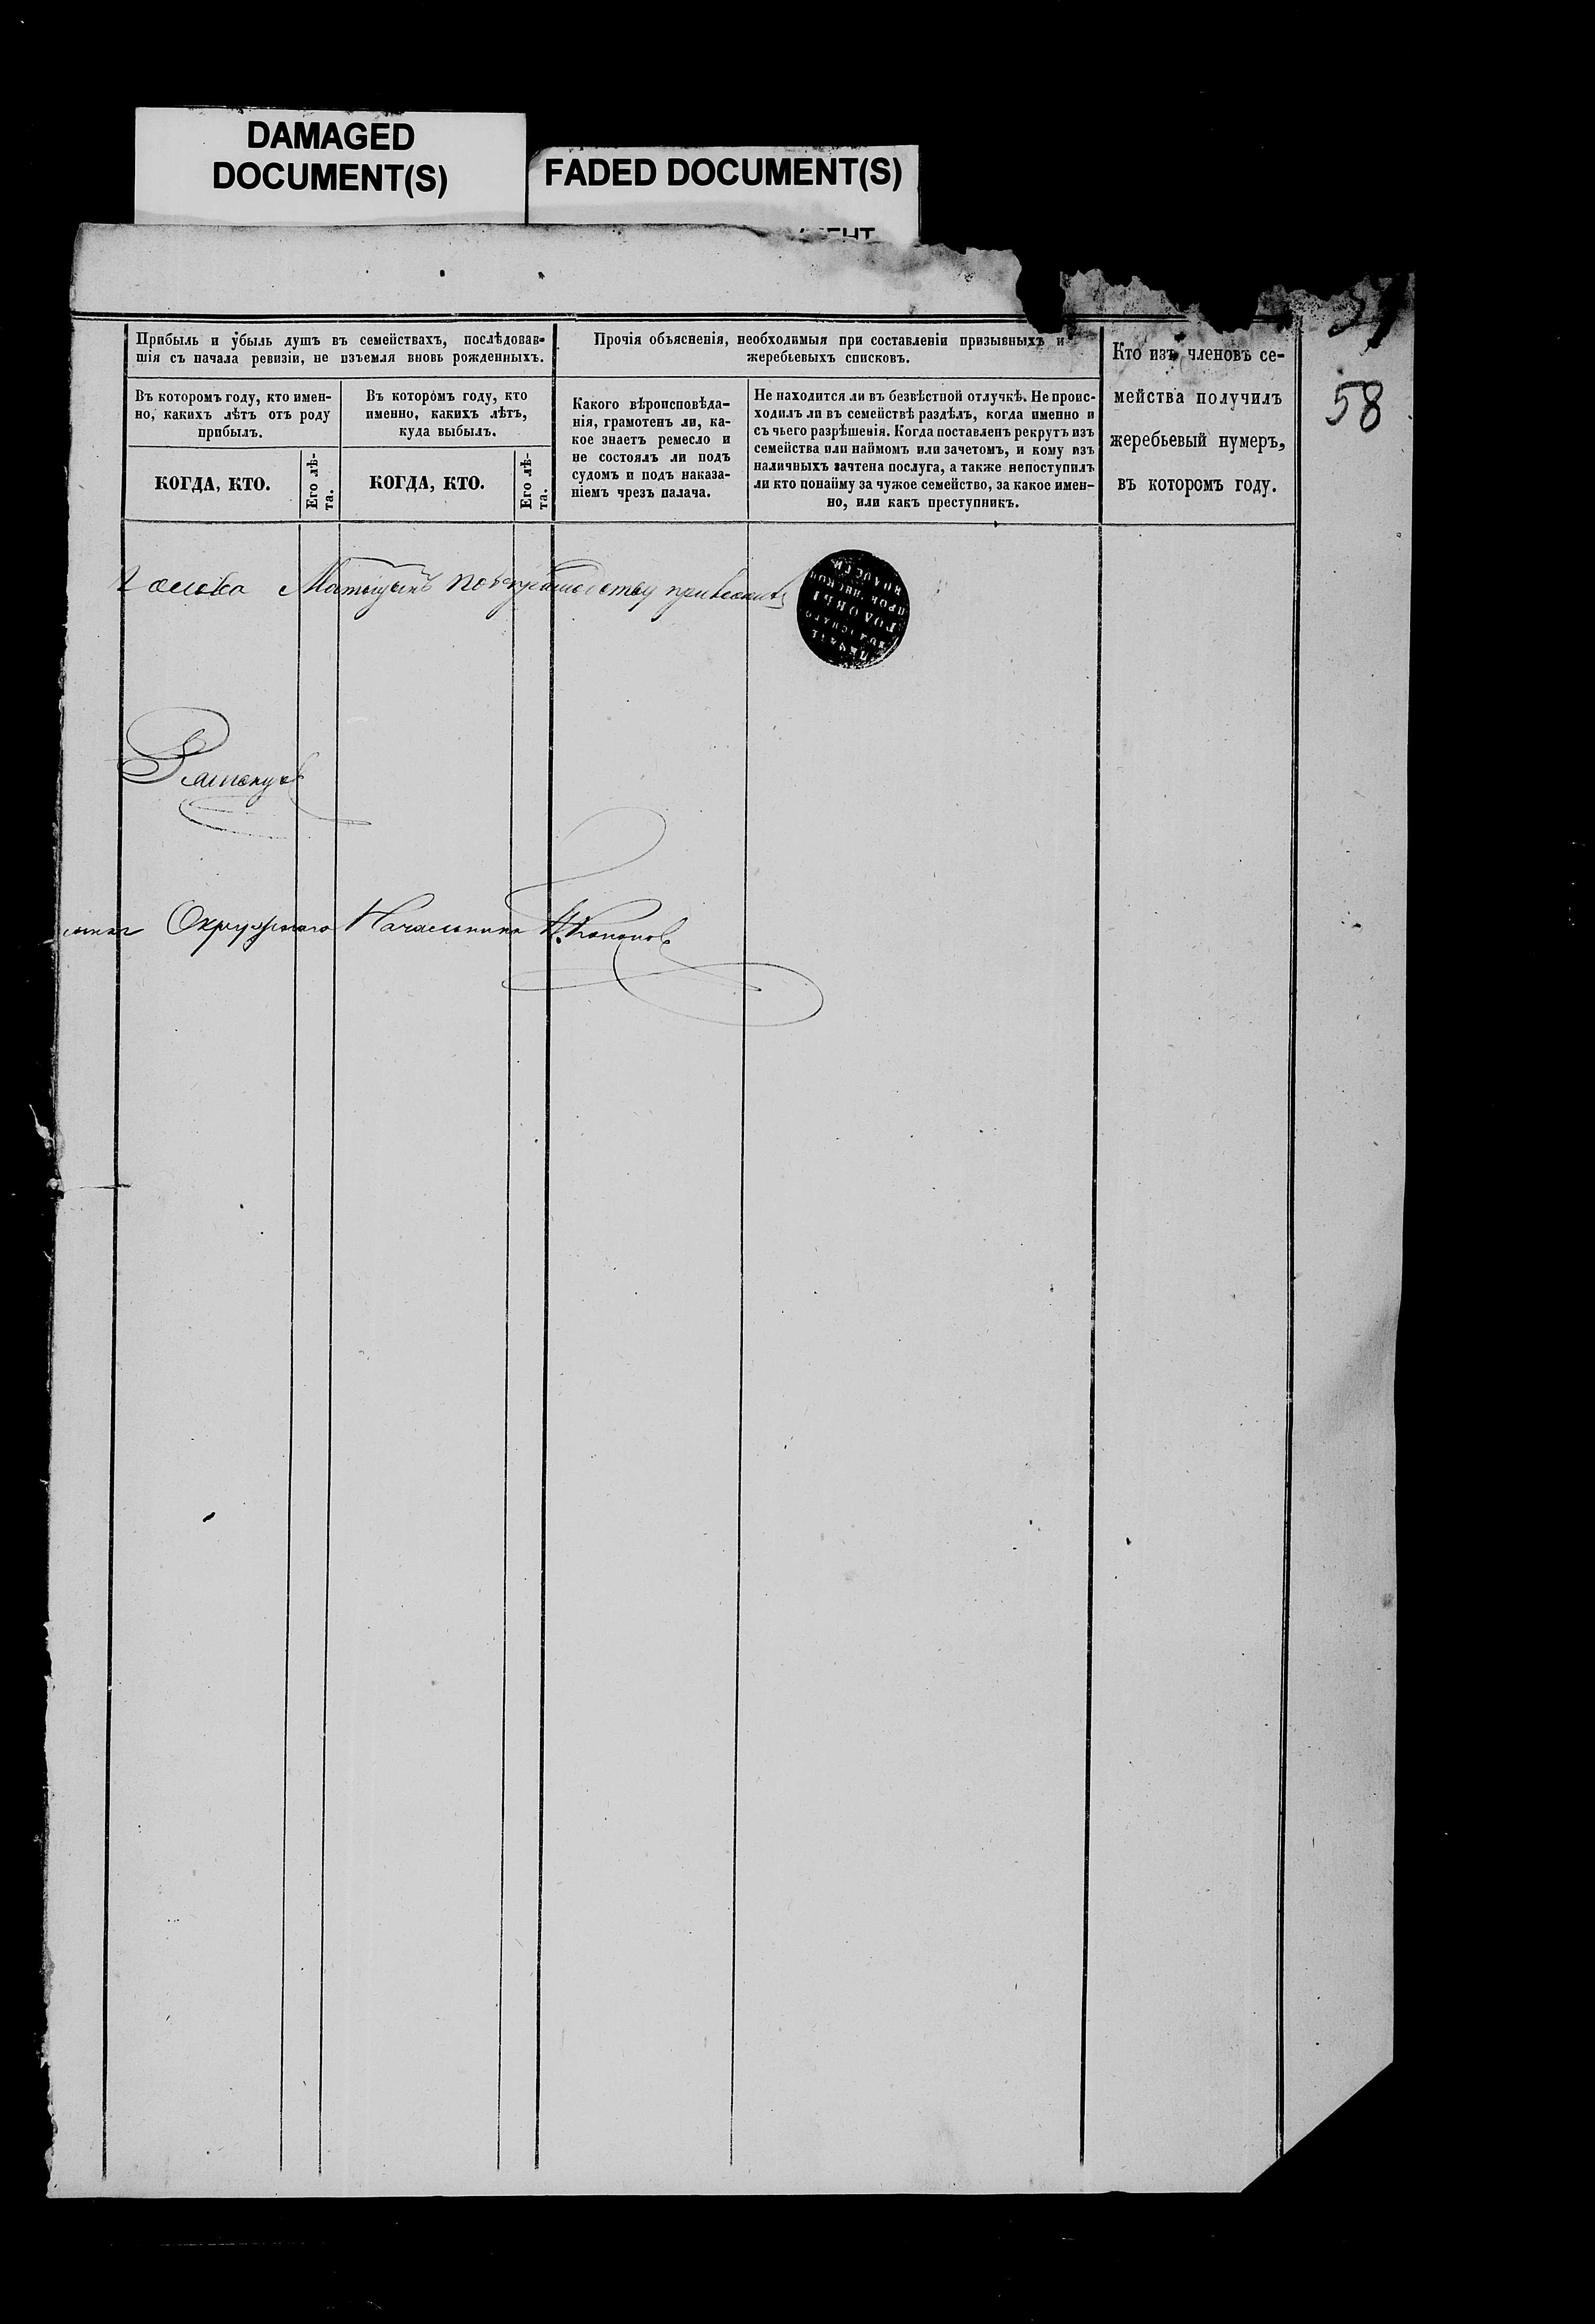 DAMAGED
DOCUMENT(S)
FADED DOCUMENT(S)
58
Прибыль и убыль душъ въ семействахъ, послѣдовав-
шія съ начала ревизіи, не изъемля вновь рожденныхъ.
Въ которомъ году, кто имен-
но, какихъ лѣтъ отъ роду
прибылъ.
Въ которомъ году, кто
именно, какихъ лѣтъ,
куда выбылъ.
КОГДА, КТО.
Его лѣ-
та.
КОГДА, КТО.
Его лѣ-
та.
Прочія объясненія, необходимыя при составленіи призывныхъ и
жеребьевыхъ списковъ.
Какого вѣроисповѣда-
нія, грамотенъ ли, ка-
кое знаетъ ремесло и
не состоялъ ли подъ
судомъ и подъ наказа-
ніемъ чрезъ палача.
Не находится ли въ безвѣстной отлучкѣ. Не проис-
ходилъ ли въ семействѣ раздѣлъ, когда именно и
съ чьего разрѣшенія. Когда поставленъ рекрутъ изъ
семейства или наймомъ или зачетомъ, и кому изъ
наличныхъ зачтена послуга, а также непоступилъ
ли кто понайму за чужое семейство, за какое имен-
но, или какъ преступникъ.
Кто изъ членовъ се-
мейства получилъ
жеребьевый нумеръ,
въ которомъ году.
Голова по
ПЕЧАТЬ
ГОЛОВЫ
Окружнаго Начальника